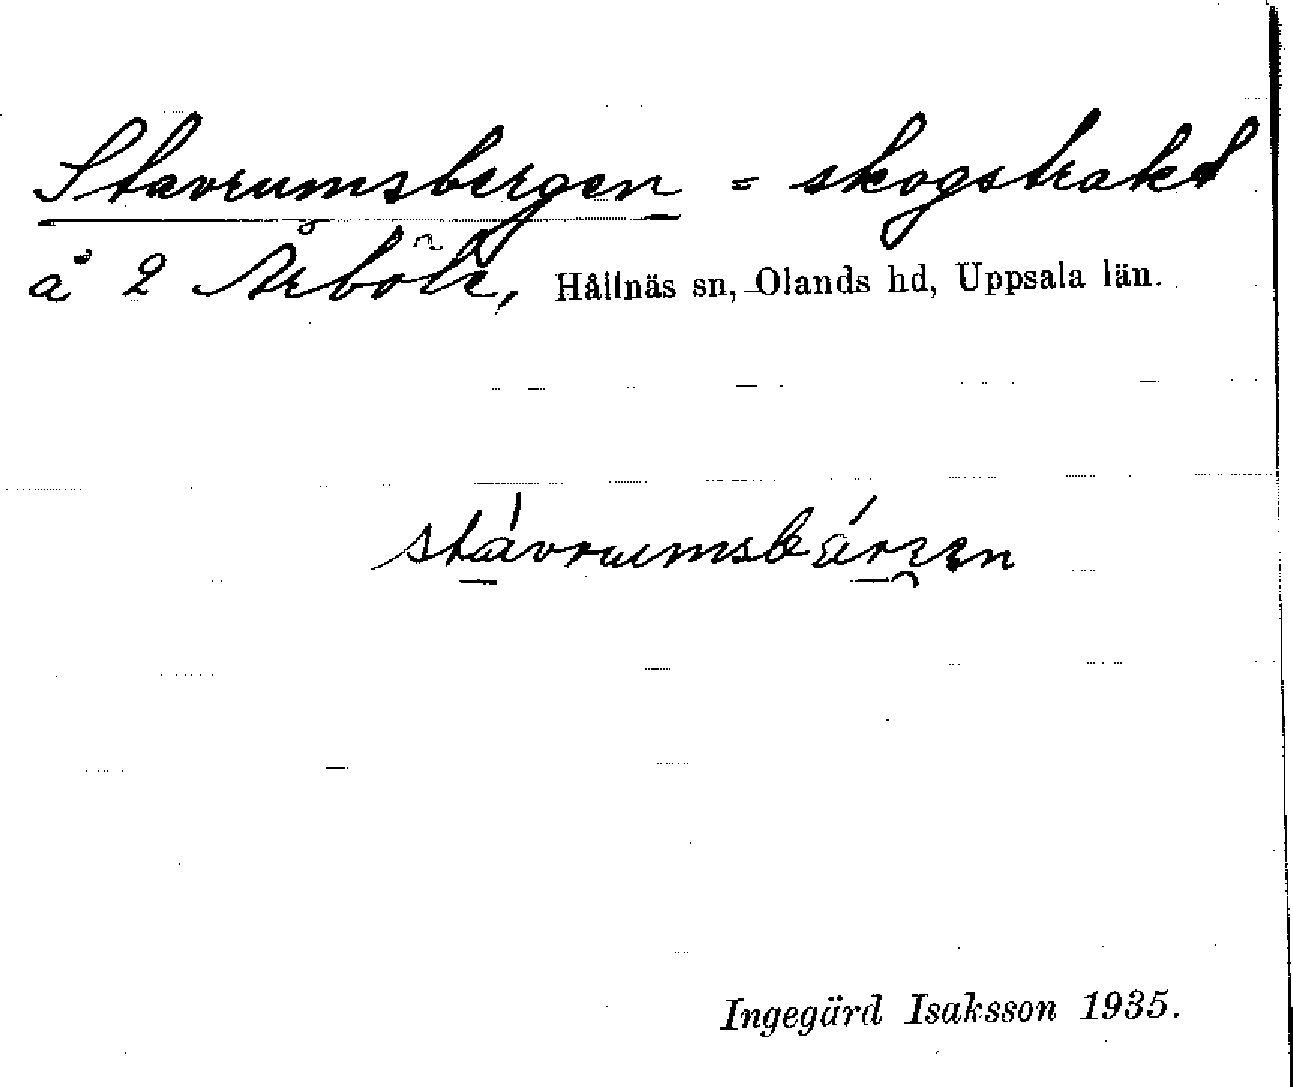 Stavrumsbergen = skogstrakt
å 2 Årböle, Hållnäs sn, Olands hd, Uppsala län.
stávrumsbárʒen
Ingegärd Isaksson 1935.